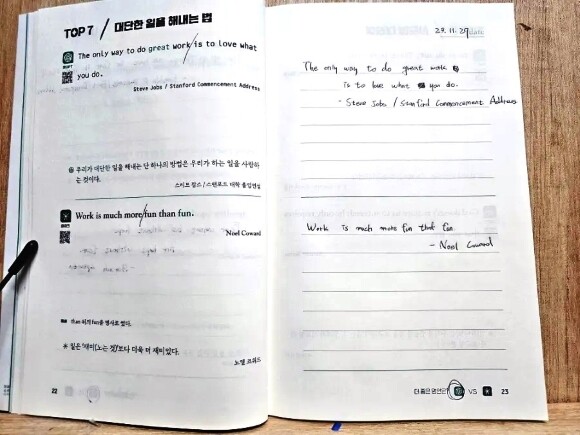 TOP 7 / 대단한 일을 해내는 법
The only way to do great work/is to love what
you do.
Steve Jobs / Stanford Commencement Address
우리가 대단한 일을 해내는 단 하나의 방법은 우리가 하는 일을 사랑하
는 것이다.
스티브 잡스 / 스탠포드 대학 졸업연설
Work is much more/fun than fun.
Noel Coward
than 뒤의 fun은 명사로 썼다.
일은 '재미(노는 것)'보다 더욱 더 재미있다.
노엘 코워드
22
23. 11. 29
The only way to do great work
is to love what you do.
- Steve Jobs / Stanford Commencement Address
Work is much more fun that fun
- Noel Coward
더 좋은 명언은? VS
23